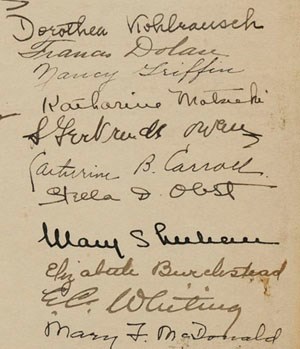 Dorothea Kohlrausch
Francis Dolan
Nancy Griffin
Katharine
S Gertrude Owens
Catherine B. Carroll
Stella D. Obst
Mary Sheehan
Elizabeth Burchstead
E.C. Whiting
Mary F. McDonald